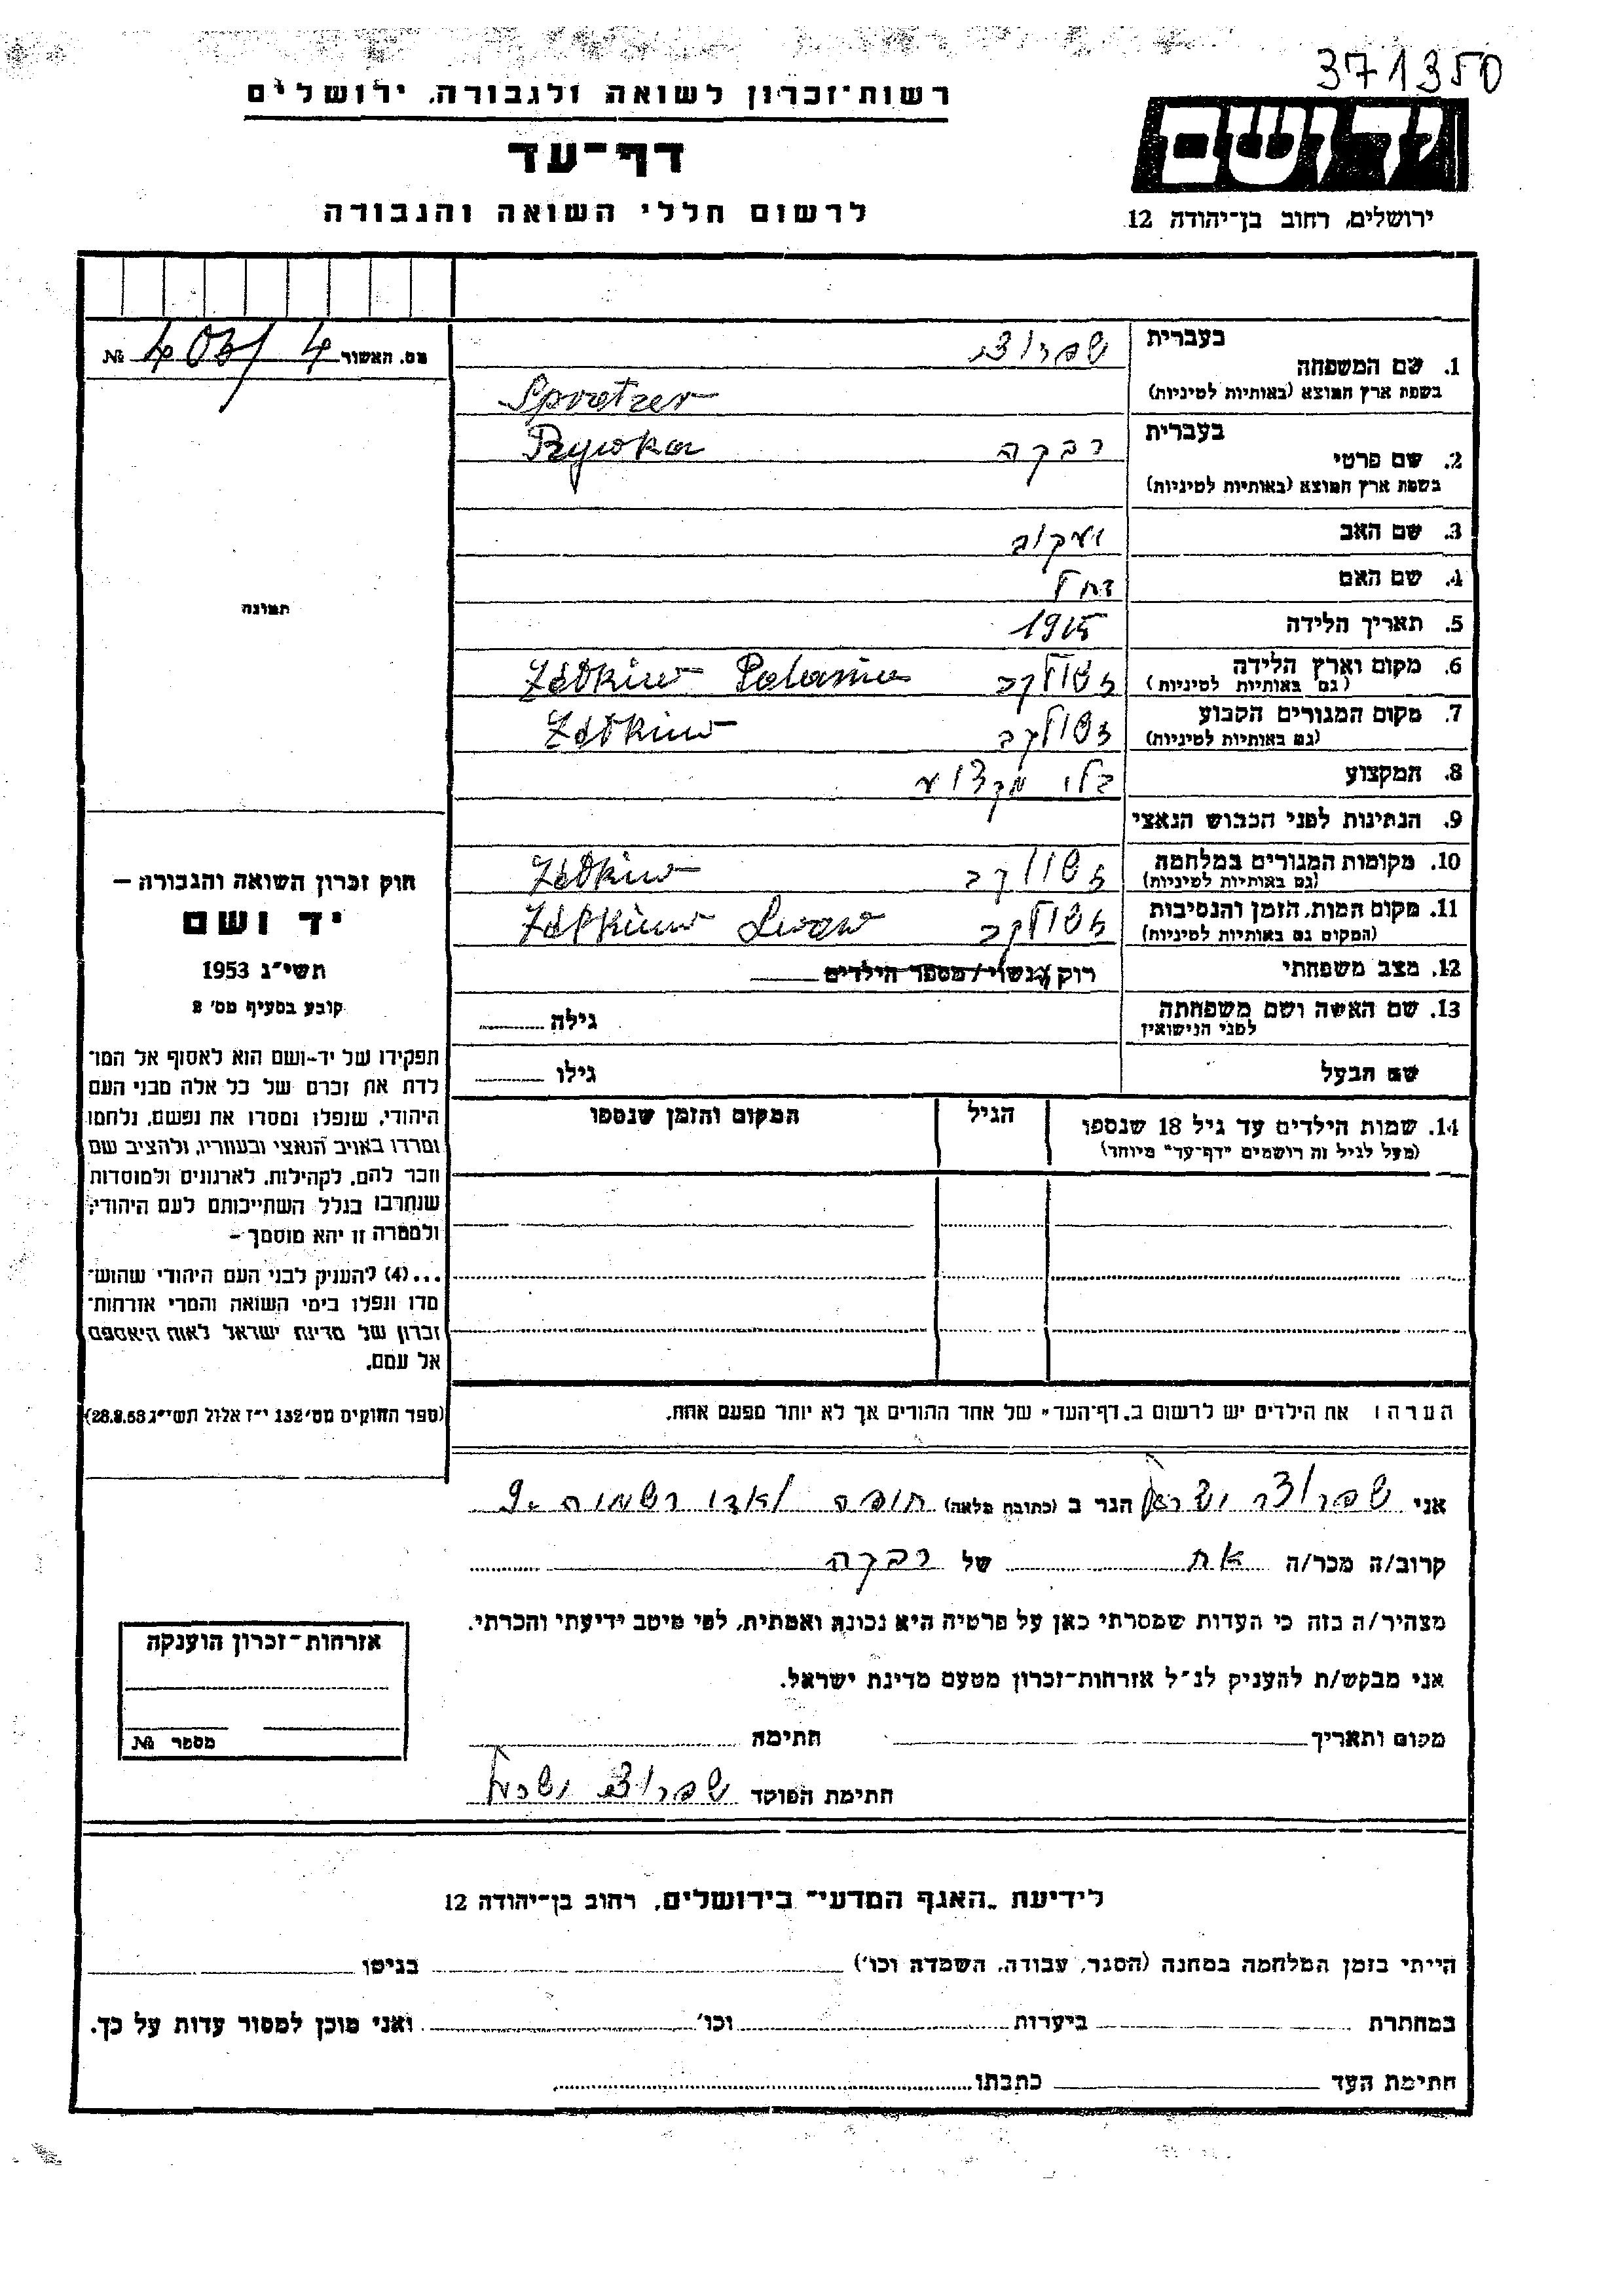 371350
רשות־זכרון לשואה ולגבורה, ירושלים
ידושם
דף־עד
לרשום חללי השואה והגבורה
ירושלים, רחוב בן־יהודה 12
מס. האשור 4 / 403 №
תמונה
חוק זכרון השואה והגבורה –
יד ושם
תשי״ג 1953
קובע בסעיף מס׳ 2
תפקידו של יד-ושם הוא לאסוף אל המו־
לדת את זכרם של כל אלה מבני העם
היהודי, שנפלו ומסרו את נפשם, נלחמו
ומרדו באויב הנאצי ובעוזריו, ולהציב שם
וזכר להם, לקהילות, לארגונים ולמוסדות
שנחרבו בגלל השתייכותם לעם היהודי;
ולמטרה זו יהא מוסמך –
...(4) להעניק לבני העם היהודי שהוש־
מדו ונפלו בימי השואה והמרי אזרחות־
זכרון של מדינת ישראל לאות היאספם
אל עמם.
(ספר החוקים מס׳ 132 י״ז אלול תשי״ג 28.8.53)
בעברית
1. שם המשפחה
בשפת ארץ המוצא (באותיות לטיניות)
Sprotzer
בעברית רבקה
2. שם פרטי Rywka
בשפת ארץ המוצא (באותיות לטיניות)
3. שם האב יעקוב
4. שם האם רחל
5. תאריך הלידה 1915
6. מקום וארץ הלידה
(גם באותיות לטיניות) Zółkiew
7. מקום המגורים הקבוע
(גם באותיות לטיניות) Zółkiew
8. המקצוע בלי מקצוע
9. הנתינות לפני הכבוש הנאצי
10. מקומות המגורים במלחמה
(גם באותיות לטיניות) Zółkiew
11. מקום המות, הזמן והנסיבות
(המקום גם באותיות לטיניות) Zółkiew Lwow
12. מצב משפחתי רוק/ה נשוי/מספר הילדים
13. שם האשה ושם משפחתה
לפני הנישואין גילה
שם הבעל גילו
14. שמות הילדים עד גיל 18 שנספו הגיל המקום והזמן שנספו
(מעל לגיל זה רושמים "דף־עד" מיוחד)
הערה: את הילדים יש לרשום ב„דף־העד" של אחד ההורים אך לא יותר מפעם אחת.
אני הגר ב (כתובת מלאה) חיפה
קרוב/ה מכר/ה אח של רבקה
מצהיר/ה בזה כי העדות שמסרתי כאן על פרטיה היא נכונה ואמתית, לפי מיטב ידיעתי והכרתי.
אני מבקש/ת להעניק לנ״ל אזרחות־זכרון מטעם מדינת ישראל.
מקום ותאריך חתימה
חתימת הפוקד
אזרחות־זכרון הוענקה
מספר №
לידיעת „האגף המדעי" בירושלים, רחוב בן־יהודה 12
הייתי בזמן המלחמה במחנה (הסגר, עבודה, השמדה וכו׳) בגיטו
במחתרת ביערות וכו׳ ואני מוכן למסור עדות על כך.
חתימת העד כתבתו